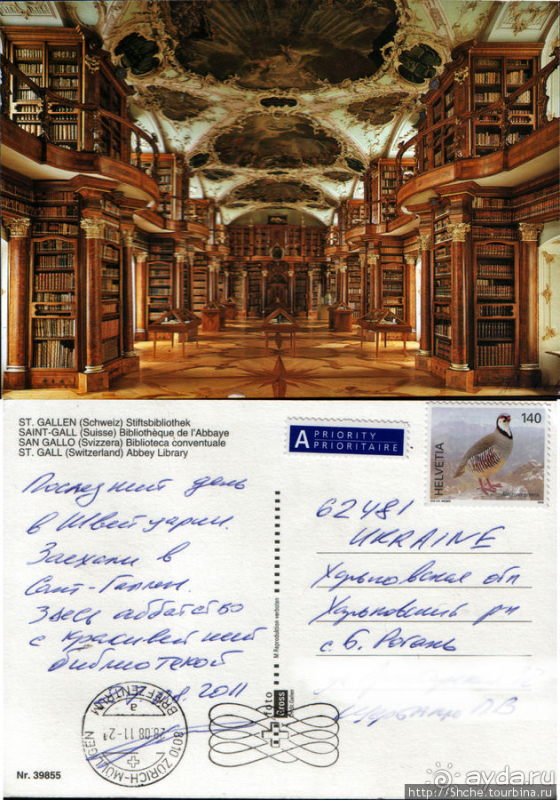 ST. GALLEN (Schweiz) Stiftsbibliothek
SAINT-GALL (Suisse) Bibliothèque de l'Abbaye
SAN GALLO (Svizzera) Biblioteca conventuale
ST. GALL (Switzerland) Abbey Library
A PRIORITY
PRIORITAIRE
140
HELVETIA
Последний день
в Швейцарии.
Заехали в
Сант-Галлен.
Здесь аббатство
с красивейший
библиотекой
2011
62481
UKRAINE
Харьковская обл
Харьковский рн
с. Б. Рогань
M Reproduktion verboten
foto
Gross
BRIEFZENTRUM
a
28.08.11-2
8010 ZÜRICH-MÜLLIGEN
Nr. 39855
ayda.ru
http://Shche.tourbina.ru